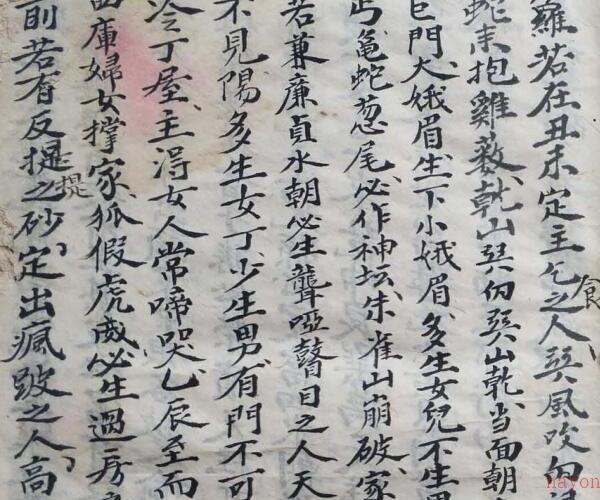 羅若在丑未定主乞食之人巽風吹向
蛇未抱雞蔜乾山巽向巽山乾当面朝
巳門大娥眉生下小娥眉多生女兒不生男
丐龜蛇葱尾必作神坛朱雀山崩破家
若兼廉貞水朝必生聾啞瞽目之人天
不見陽多生女丁少生男有門不可
冷亡丁屋主淂女人常啼哭乙辰至而
庫婦女撑家狐假虎威必生過房
前若有反提之砂定出瘋跛之人高
提
nayon